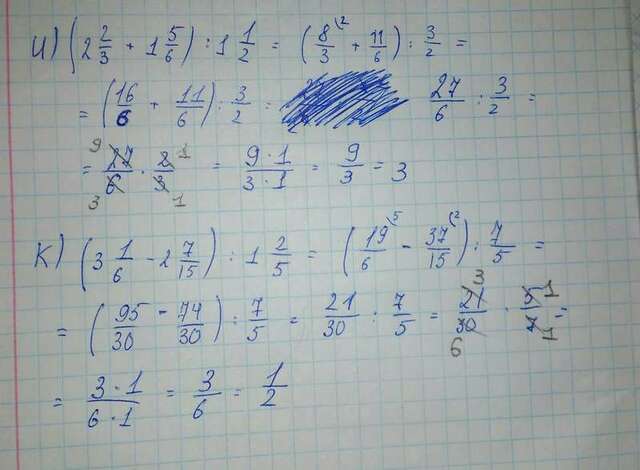 и) (2 2/3 + 1 5/6) : 1 1/2 = (8/3 ⁽² + 11/6) : 3/2 =
= (16/6 + 11/6) : 3/2 = 27/6 : 3/2 =
= 27/6 9 3 · 2/3 1 1 = 9·1/3·1 = 9/3 = 3
к) (3 1/6 - 2 7/15) : 1 2/5 = (19/6 ⁽⁵ - 37/15 ⁽²) : 7/5 =
= (95/30 - 74/30) : 7/5 = 21/30 : 7/5 = 21/30 3 6 · 5/7 1 1 =
= 3·1/6·1 = 3/6 = 1/2